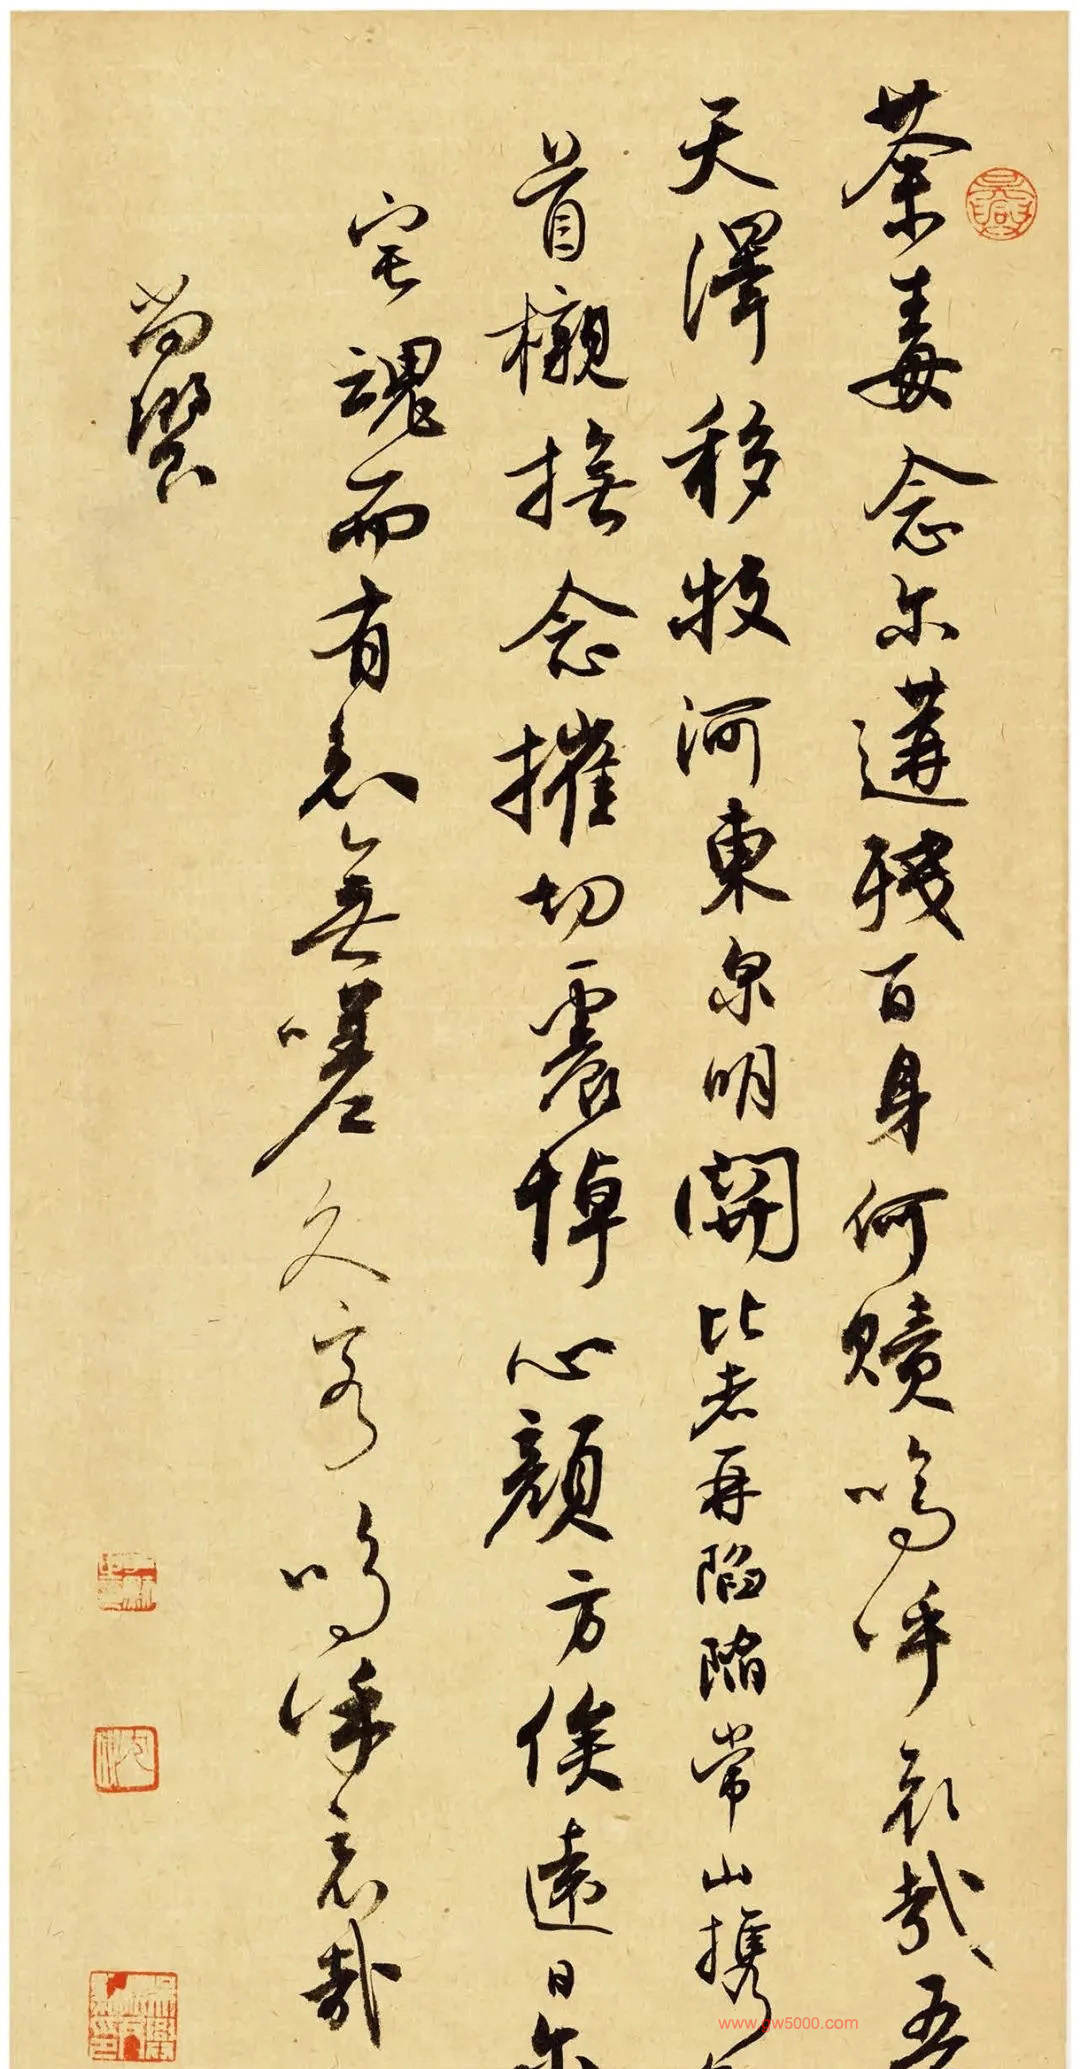 荼毒念尔遘残百身何赎呜呼哀哉吾
天澤移牧河東泉明關比者再陷陷常山攜
首櫬撫念摧切震悼心顏方俟遠日尔
宅魂而有知無嗟久客嗚呼哀哉
尚饗
www.gw5000.com